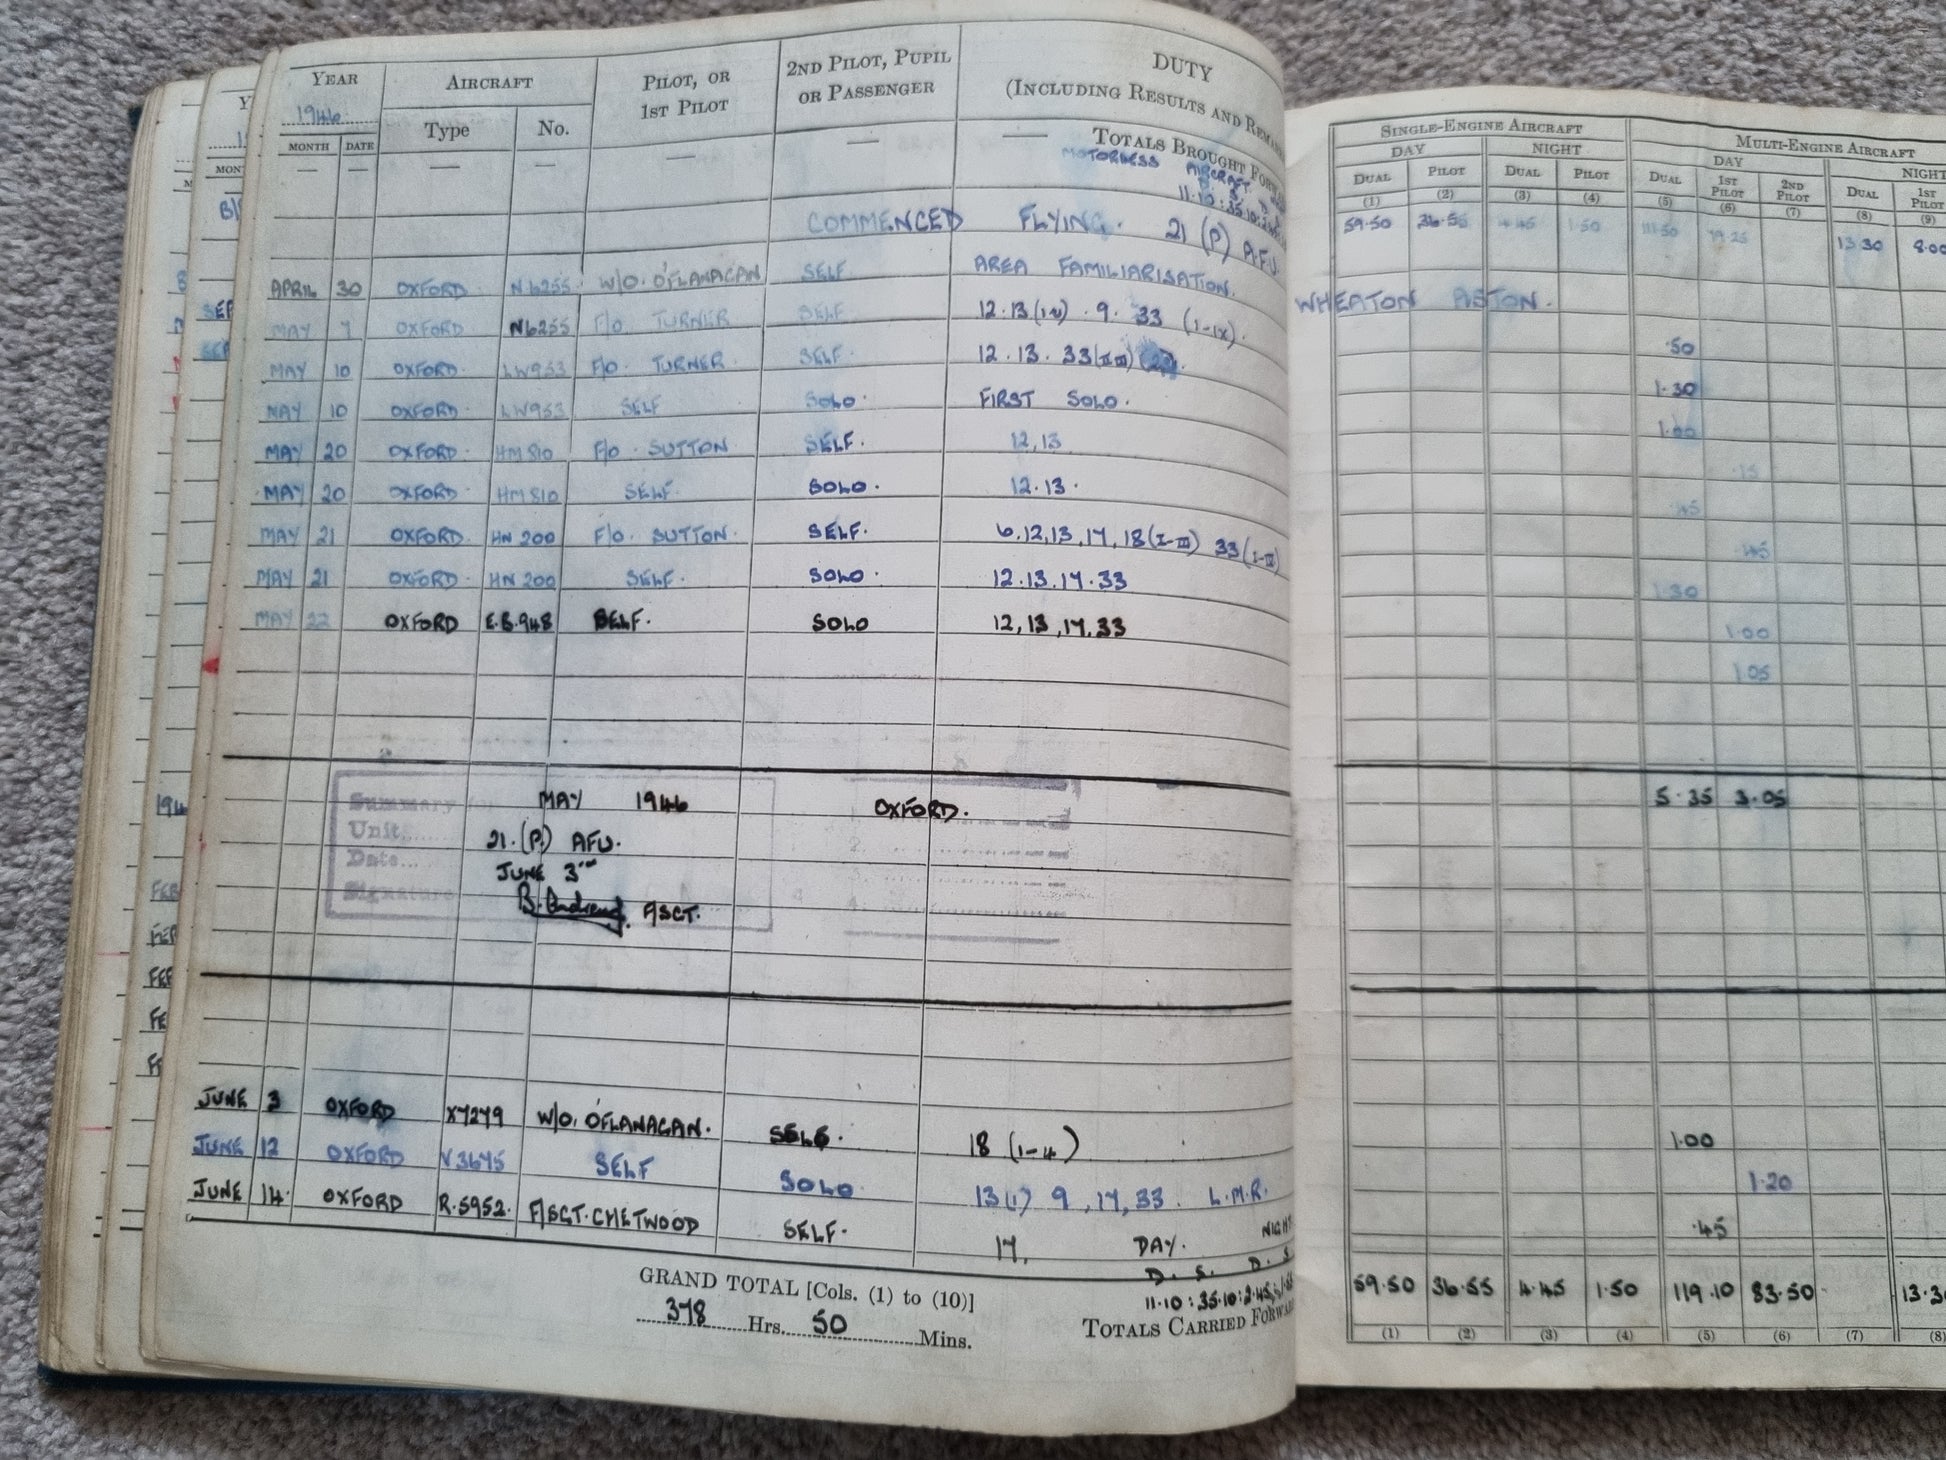 YEAR AIRCRAFT PILOT, OR 1ST PILOT 2ND PILOT, PUPIL OR PASSENGER DUTY (INCLUDING RESULTS AND REMA
1946
MONTH DATE Type No.
— — — — — — —
TOTALS BROUGHT FORW
MOTORLESS AIRCRAFT
COMMENCED FLYING. 21 (P) A.F.U.
APRIL 30 OXFORD. N6255. W/O. O'FLANAGAN SELF AREA FAMILIARISATION.
MAY 7 OXFORD. N6255 F/O TURNER SELF 12.13 . 9. 33 (I-IX).
MAY 10 OXFORD. LW953 F/O. TURNER. SELF. 12.13. 33
MAY 10 OXFORD. LW953 SELF SOLO. FIRST SOLO.
MAY 20 OXFORD. HM810 F/O. SUTTON SELF. 12,13
MAY 20 OXFORD. HM810 SELF. SOLO. 12.13.
MAY 21 OXFORD. HN200 F/O. SUTTON. SELF. 6,12,13,17,18(I-III) 33(I-III)
MAY 21 OXFORD. HN200 SELF. SOLO. 12.13.17.33
MAY 22 OXFORD E.B.948 SELF. SOLO 12,13,17,33
Summary MAY 1946 OXFORD. 1.
Unit 21.(P.) AFU. 2.
Date JUNE 3RD 3.
Signature F/SGT. 4.
JUNE 3 OXFORD X7279 W/O. O'FLANAGAN. SELF. 18 (1-4)
JUNE 12 OXFORD V3675 SELF SOLO 13(1) 9, 17, 33. L.M.R.
JUNE 14. OXFORD R.5952. F/SGT. CHETWOOD SELF. 17. DAY. NIGHT
D. S. D. S
GRAND TOTAL [Cols. (1) to (10)]
378 Hrs. 50 Mins.
11.10:35.10:2.45
TOTALS CARRIED FORWAR
SINGLE-ENGINE AIRCRAFT MULTI-ENGINE AIRCRAFT
DAY NIGHT DAY NIGHT
DUAL PILOT DUAL PILOT DUAL 1ST PILOT 2ND PILOT DUAL 1ST PILOT
(1) (2) (3) (4) (5) (6) (7) (8) (9)
59.50 36.55 4.45 1.50 111.50 79.25 13.30 8.00
WHEATON ASTON.
.50
1.30
1.00
.15
.45
.45
1.30
1.00
1.05
5.35 3.05
1.00
1.20
.45
59.50 36.55 4.45 1.50 119.10 83.50 13.3
(1) (2) (3) (4) (5) (6) (7) (8)